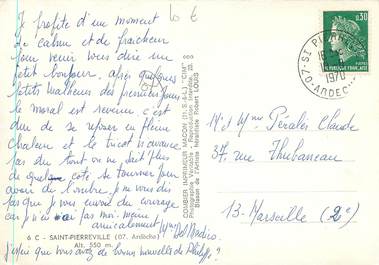 10 €
Je profite d'un moment
de calme et de fraicheur
pour venir vous dire un
petit bonjour, après quelques
petits malheurs des premiers jours
le moral est revenu. c'est
dur de se reposer en pleine
chaleur et le tricot n'avance
pas du tout on ne sait plus
de quelque coté se tourner pour
avoir de l'ombre. Je ne vous dis
pas que je vous envoie du courage
car je n'en ai pas moi-meme
amicalement
6 C - SAINT-PIERREVILLE (07. Ardèche)
Alt. 550 m.
J'espère que vous avez de bonnes nouvelles de Philippe?
COMBIER IMPRIMEUR MACON (71-S.-&-L.) "CIM"
Photographie Véritable - Reproduction interdite
Blason de l'Artiste héraldiste Robert LOUIS
0,30
REPUBLIQUE FRANCAISE
07-ST PIERREVILLE
1970
ARDECHE
Mr et Mme Péralès Claude
37, rue Thubaneau
13-Marseille (2e)